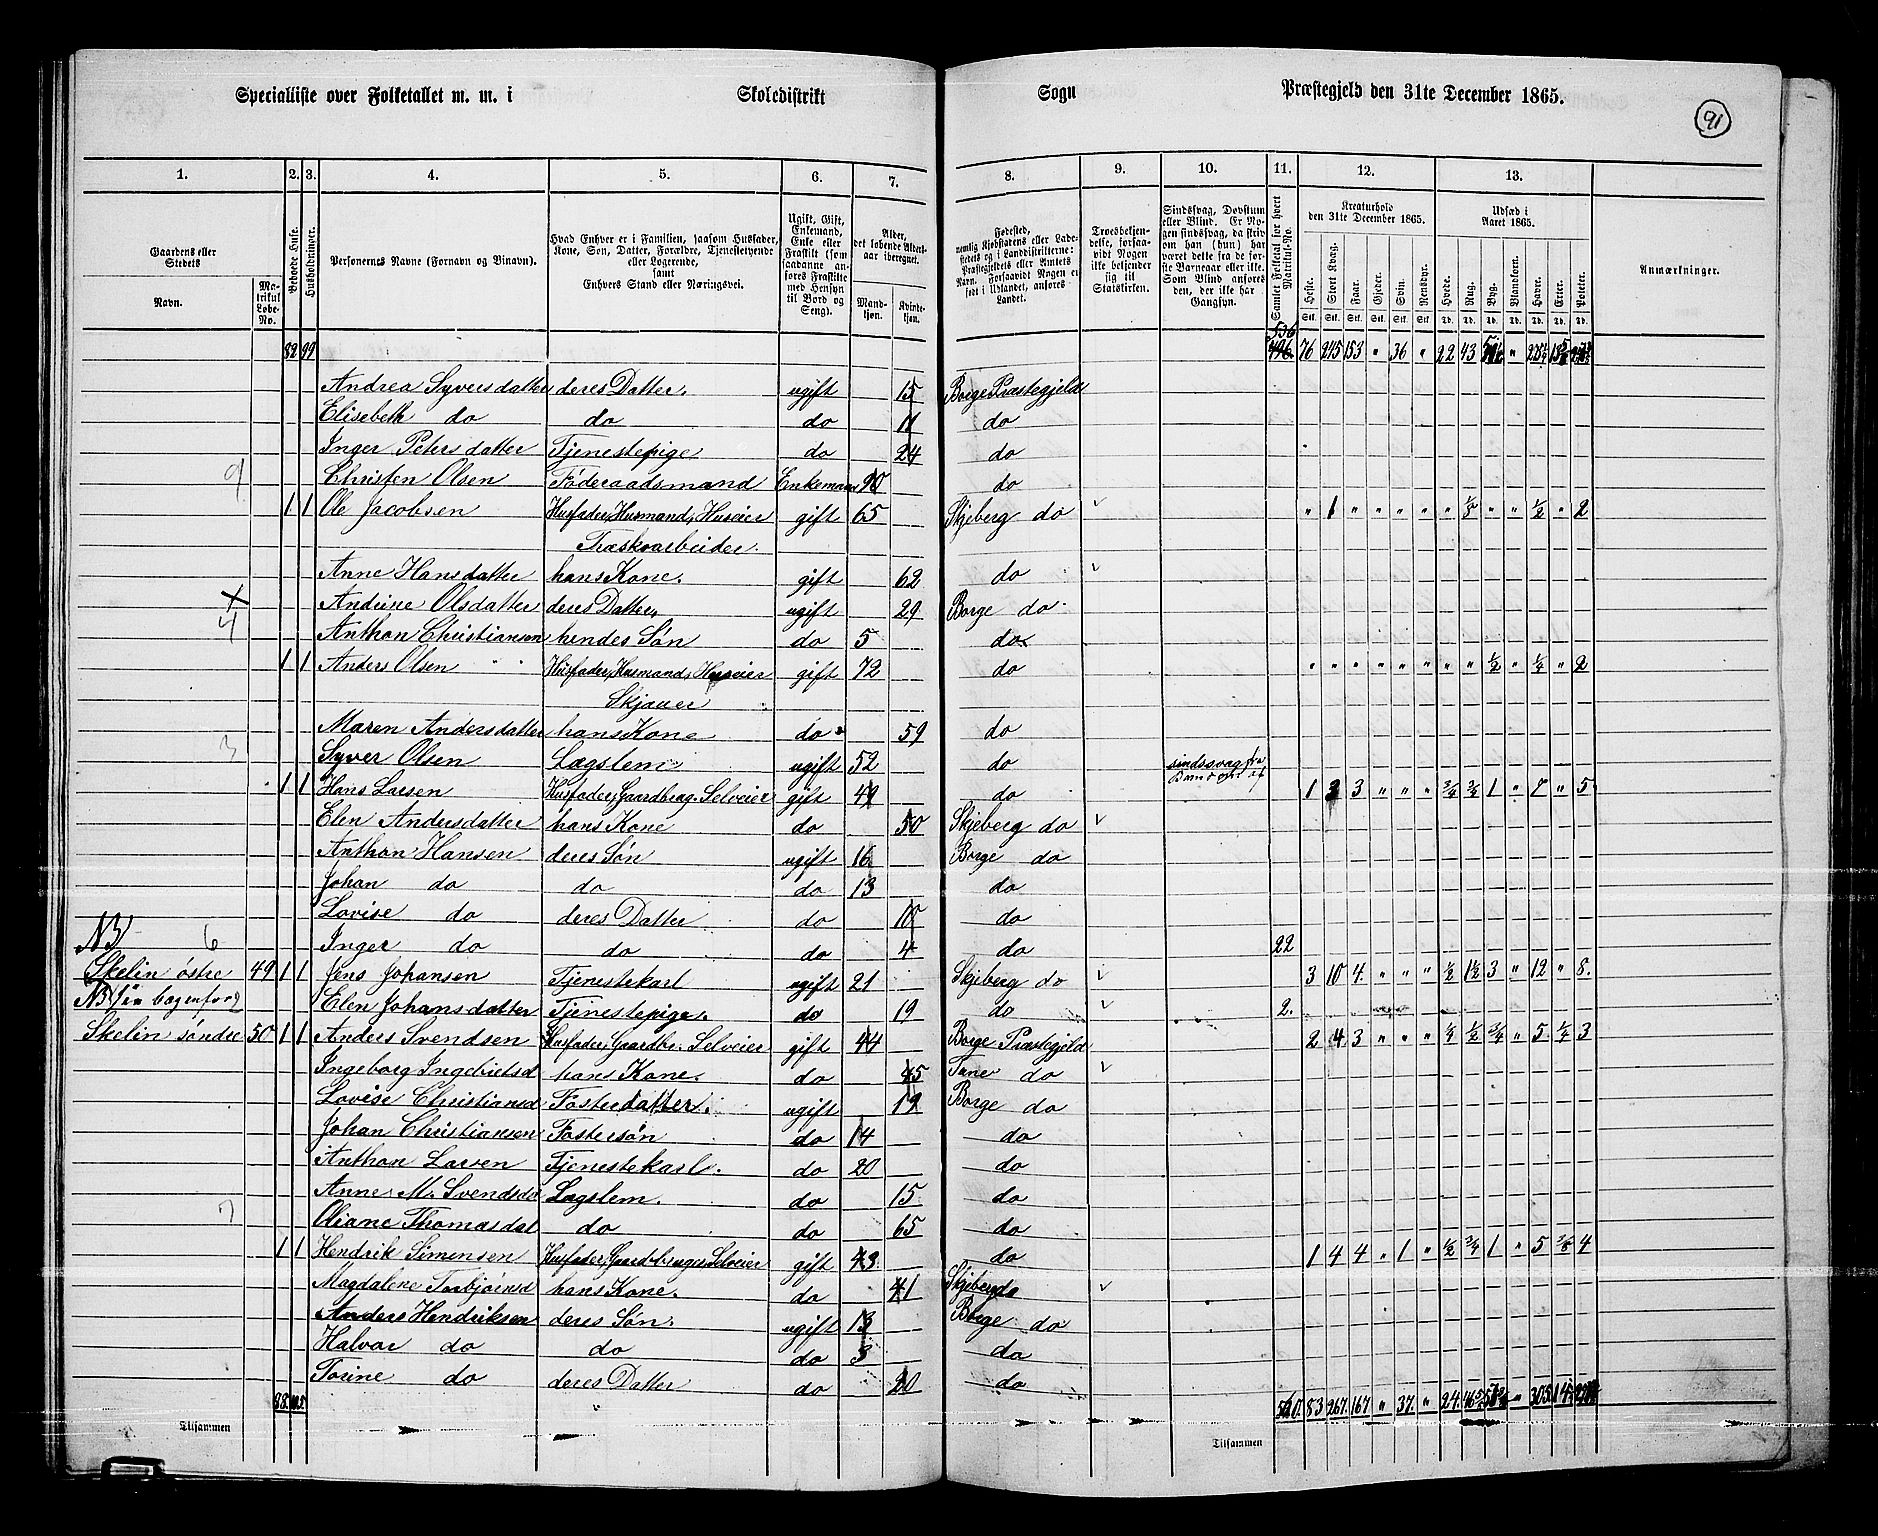 Specialliste over Folketallet m. m. i Skoledistrikt Sogn Præstegjeld den 31te December 1865.
91
1. 2. 3. 4. 5. 6. 7. 8. 9. 10. 11. 12. 13.
Gaardens eller Stedets Navn. Matrikul Løbe-No. Beboede Huse. Husholdninger. Personernes Navne (Fornavn og Binavn). Hvad Enhver er i Familien, saasom Husfader, Kone, Søn, Datter, Forældre, Tjenestetyende eller Logerende, samt Enhvers Stand eller Næringsvei. Ugift, Gift, Enkemand, Enke eller Fraskilt (som saadanne anføres Fraskilte med Hensyn til Bord og Seng). Alder, det løbende Aldersaar iberegnet. Mandkjøn. Kvindekjøn.
Fødested, nemlig Kjøbstadens eller Ladestedets og i Landdistrikterne: Præstegjeldets eller Amtets Navn. Forsaavidt Nogen er født i Udlandet, anføres Landet. Troesbekjendelse, forsaavidt Nogen ikke bekjender sig til Statskirken. Sindssvag, Døvstum eller Blind. Er Nogen sindssvag, da skriv om han (hun) har været dette fra de første Barneaar eller ikke. Som Blind anføres den, der ikke har Gangsyn. Samlet Folketal for hvert Matrikul-No. Kreaturhold den 31te December 1865. Heste. Stort Kvæg. Faar. Gjeder. Svin. Rensdyr. Udsæd i Aaret 1865. Hvede. Rug. Byg. Blandkorn. Havre. Erter. Poteter. Anmærkninger.
82 99 536 496. 76 245 153 " 36 " 22 43
Andrea Syversdatter deres Datter. ugift 15 Borge Præstegjeld
Elisebeth do do do 11 do
Inger Petersdatter Tjenestepige do 24 do
9 Christen Olsen Føderaadsmand Enkemann 90 do
1 1 Ole Jacobsen Husfader, Husmand, Huseier gift 65 Skjeberg do " 1 " " " " " 1/8 " " 1/2 " 2
Træskoarbeider.
Anne Hansdatter hans Kone. gift 62 do
Andrine Olsdatter deres Datter. ugift 29 Borge do
4 Anthon Christiansen hendes Søn do 5 do
1 1 Anders Olsen Husfader, Husmand, Huseier gift 72 do " " " " " " " " 1/2 " 1/4 " 2
Skjauer
Maren Andersdatter hans Kone do 59 do
3 Syver Olsen Lægslem ugift 52 do sindssvag fra Barndom af
1 1 Hans Larsen Husfader, Gaardbrug. Selveier gift 49 do 1 3 3 " " " 3/4 3/4 1 " 7 " 5
Elen Andersdatter hans Kone do 50 Skjeberg do
Anthon Hansen deres Søn ugift 16 Borge do
Johan do do do 13 do
Lovise do deres Datter do 10 do
NB 6 Inger do do do 4 do 22
Skelin østre 49 1 1 Jens Johansen Tjenestekarl ugift 21 Skjeberg do 3 10 4 " " " 1/2 1 1/2 3 " 12 " 8
Elen Johansdatter Tjenestepige. do 19 do 2.
Skelin søndre 50 1 1 Anders Svendsen Husfader, Gaardbr. Selveier gift 44 Borge Præstegjeld 2 4 3 " " " 1/4 1/2 3/4 " 5 1/4 3
Ingeborg Ingebretsd hans Kone. do 45 Tune do
Lovise Christiansd Fosterdatter. ugift 19 Borge do
Johan Christiansen Fostersøn do 14 do
Anthon Larsen Tjenestekarl. do 20 do
Anne M. Svendsda Lægslem. do 15 do
7 Oliane Thomasdat do do 65 do
1 1 Hendrik Simensen Husfader, Gaardbruger, Selveier gift 43 do 1 4 4 " 1 " 1/2 3/4 1 " 5 3/8 4
Magdalene Torbjørnsd hans Kone. do 41 Skjeberg do
Anders Hendriksen deres Søn. ugift 13 Borge do
Halvor do do do 3 do
Torine do deres Datter do 20 do
88 105 560. 83 267. 167 " 37. " 24
Tilsammen Tilsammen